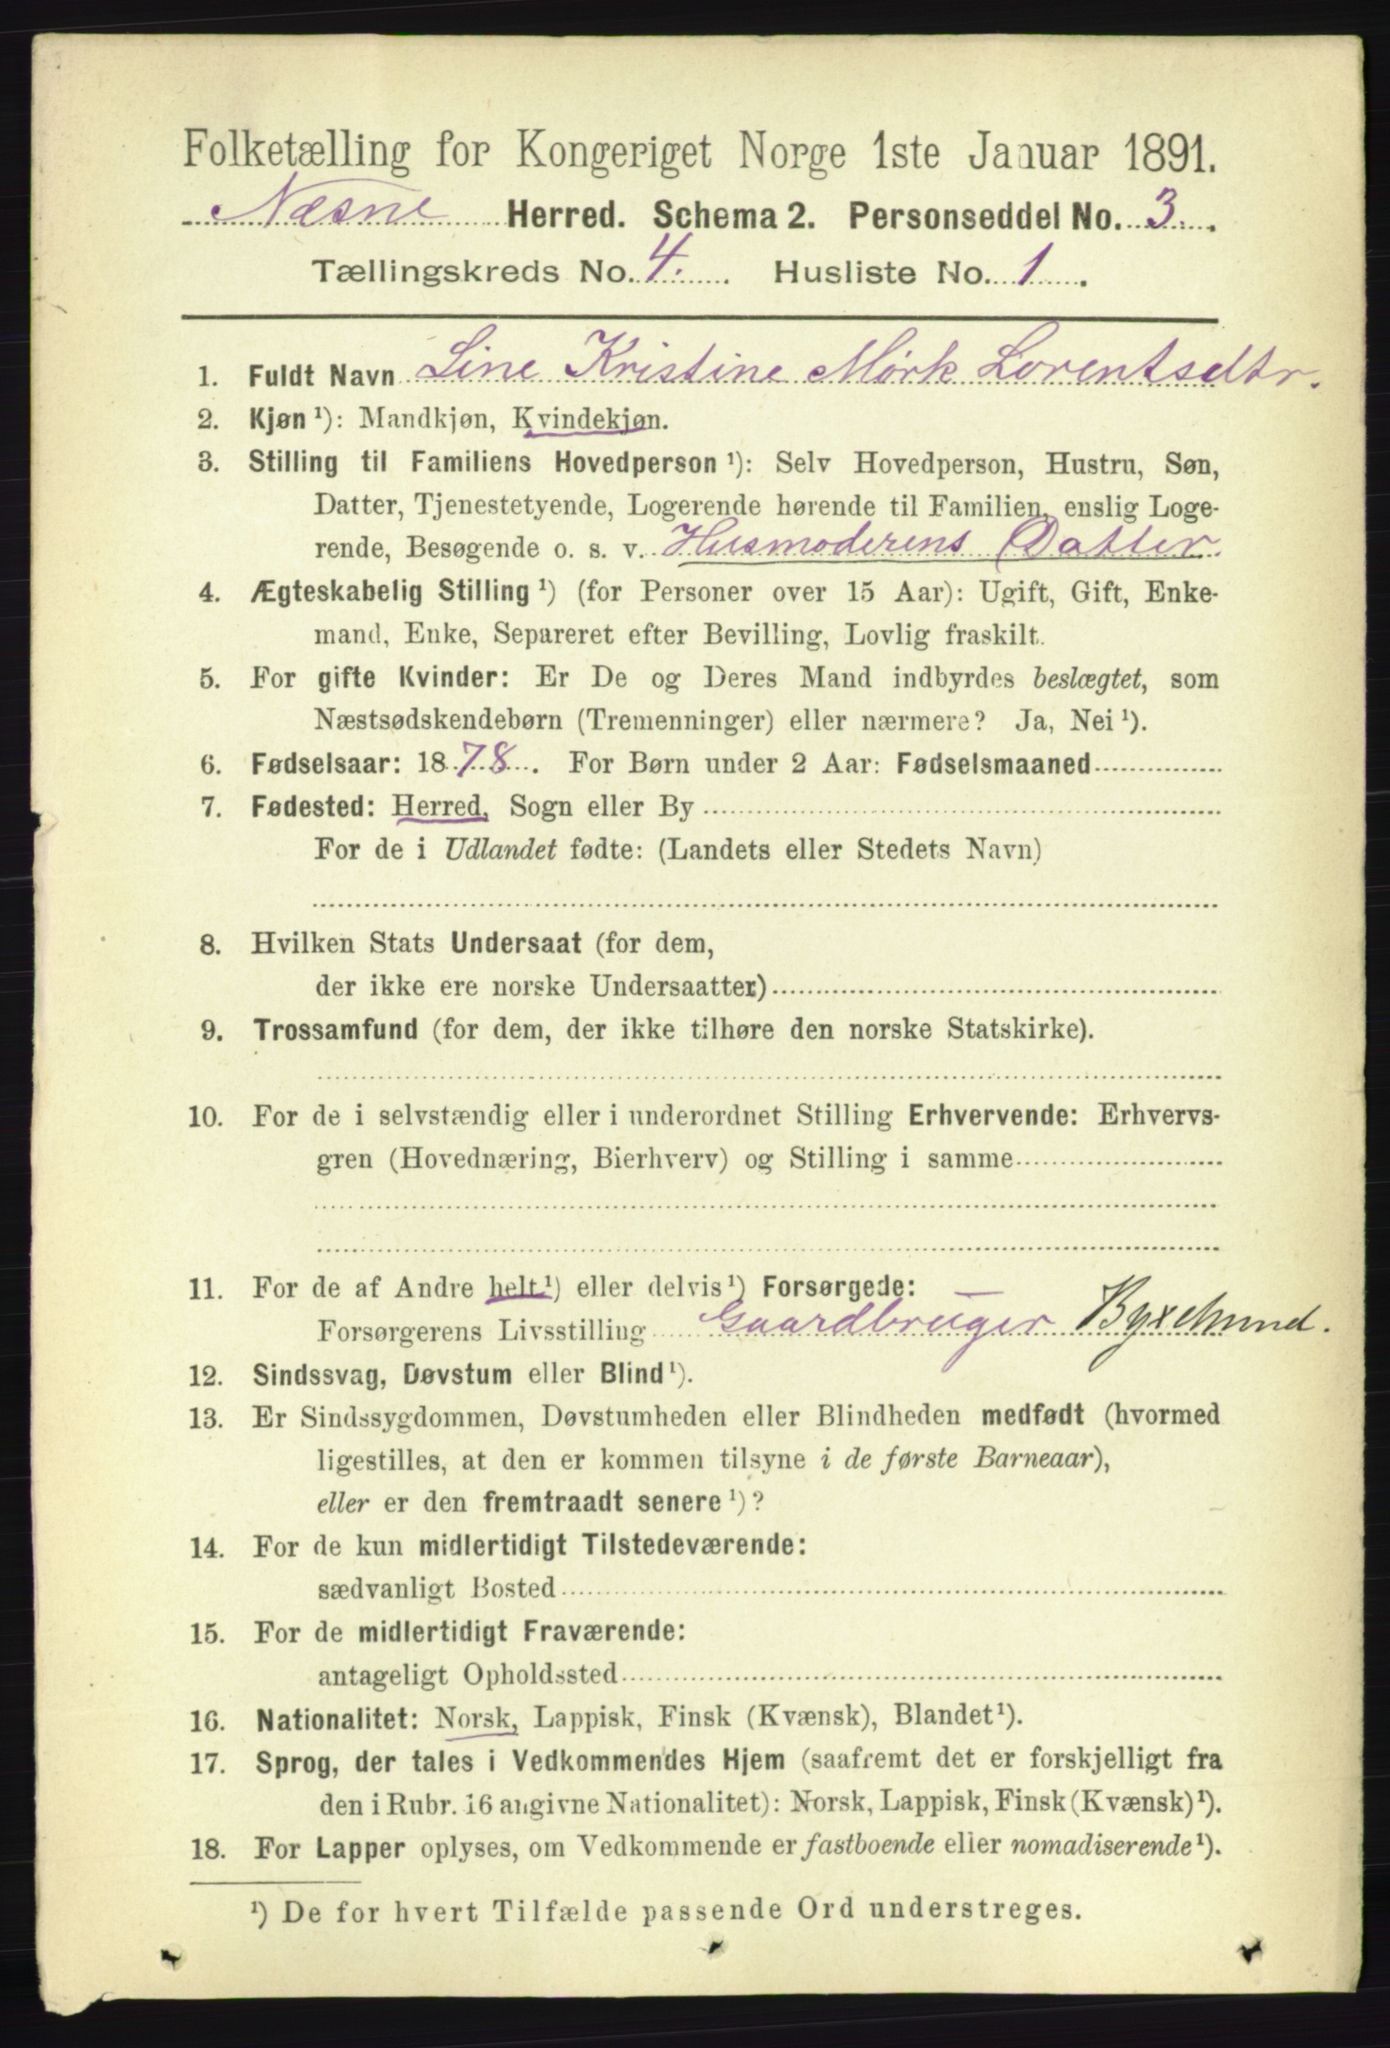 Folketælling for Kongeriget Norge 1ste Januar 1891.
Næsne Herred. Schema 2. Personseddel No. 3.
Tællingskreds No. 4. Husliste No. 1.
1. Fuldt Navn Line Kristine Mörk Lorentsdtr.
2. Kjøn ¹): Mandkjøn, Kvindekjøn.
3. Stilling til Familiens Hovedperson ¹): Selv Hovedperson, Hustru, Søn,
Datter, Tjenestetyende, Logerende hørende til Familien, enslig Loge-
rende, Besøgende o. s. v. Husmoderens Datter.
4. Ægteskabelig Stilling ¹) (for Personer over 15 Aar): Ugift, Gift, Enke-
mand, Enke, Separeret efter Bevilling, Lovlig fraskilt.
5. For gifte Kvinder: Er De og Deres Mand indbyrdes beslægtet, som
Næstsødskendebørn (Tremenninger) eller nærmere? Ja, Nei ¹).
6. Fødselsaar: 1878. For Børn under 2 Aar: Fødselsmaaned
7. Fødested: Herred, Sogn eller By
For de i Udlandet fødte: (Landets eller Stedets Navn)
8. Hvilken Stats Undersaat (for dem,
der ikke ere norske Undersaatter)
9. Trossamfund (for dem, der ikke tilhøre den norske Statskirke).
10. For de i selvstændig eller i underordnet Stilling Erhvervende: Erhvervs-
gren (Hovednæring, Bierhverv) og Stilling i samme
11. For de af Andre helt ¹) eller delvis ¹) Forsørgede:
Forsørgerens Livsstilling Gaardbruger
12. Sindssvag, Døvstum eller Blind ¹).
13. Er Sindssygdommen, Døvstumheden eller Blindheden medfødt (hvormed
ligestilles, at den er kommen tilsyne i de første Barneaar),
eller er den fremtraadt senere ¹)?
14. For de kun midlertidigt Tilstedeværende:
sædvanligt Bosted
15. For de midlertidigt Fraværende:
antageligt Opholdssted
16. Nationalitet: Norsk, Lappisk, Finsk (Kvænsk), Blandet ¹).
17. Sprog, der tales i Vedkommendes Hjem (saafremt det er forskjelligt fra
den i Rubr. 16 angivne Nationalitet): Norsk, Lappisk, Finsk (Kvænsk) ¹).
18. For Lapper oplyses, om Vedkommende er fastboende eller nomadiserende ¹).
¹) De for hvert Tilfælde passende Ord understreges.